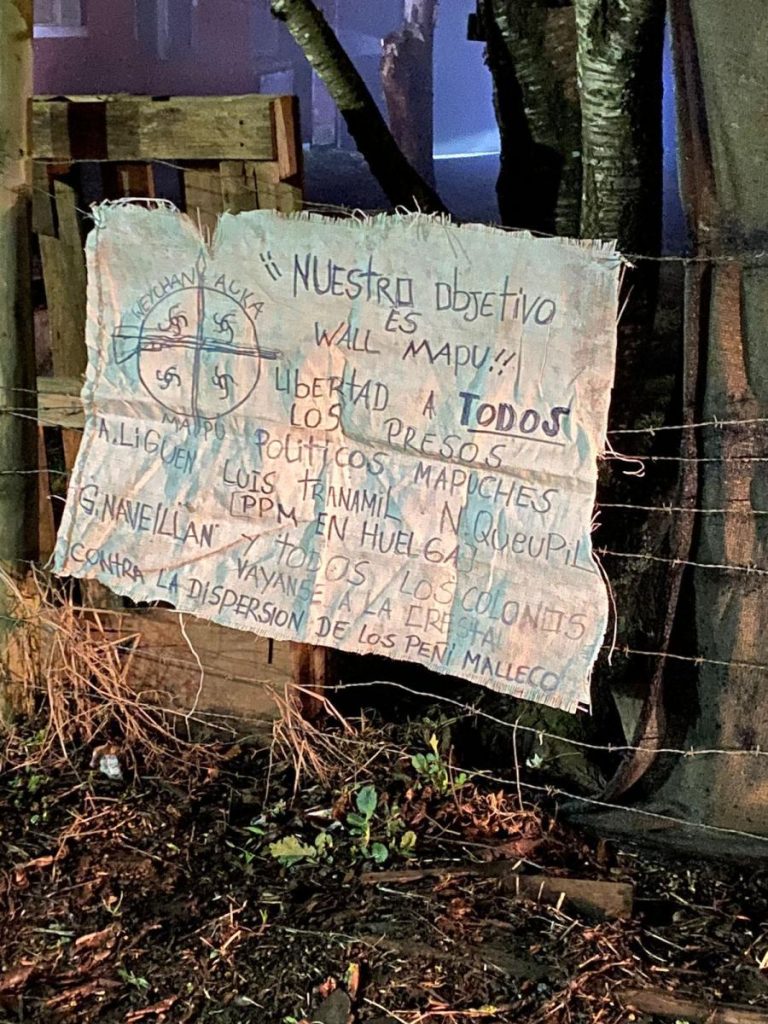 WEYCHAN AUKA
MAPU
¡¡ NUESTRO ObJETIVO
ES
WALL MAPU!!
LIbERTAD A TODOS
LOS PRESOS
POLITICOS MAPUCHES
A. LIGUEN LUIS TRANAMIL N. QUEUPIL
[PPM EN HUELGA]
G. NAVEILLAN Y TODOS LOS COLONOS
VAYANSE A LA CRESTA
CONTRA LA DISPERSION DE LOS PEÑI MALLECO